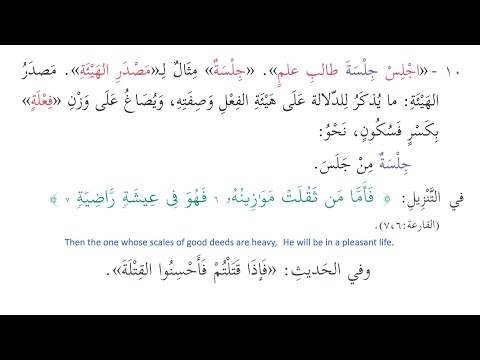 ١٠ - «اجْلِسْ جِلْسَةَ طالبِ علمٍ». «جِلْسَةٌ» مِثَالٌ لِـ«مَصْدَرِ الهَيْئَةِ». مَصدَرُ
الهَيْئَةِ: ما يُذكَرُ لِلدّلالة عَلَى هَيْئَةِ الفِعْلِ وَصِفَتِهِ، وَيُصَاغُ عَلَى وَزْنِ «فِعْلَةٍ»
بِكَسْرٍ فَسُكُونٍ، نَحْوُ:
جِلْسَةٌ مِنْ جَلَسَ.
في التَّنْزِيلِ: ﴿ فَأَمَّا مَن ثَقُلَتْ مَوَٰزِينُهُۥ ٦ فَهُوَ فِى عِيشَةٍ رَّاضِيَةٍ ٧ ﴾
(القارعة:٧،٦).
Then the one whose scales of good deeds are heavy, He will be in a pleasant life.
وفي الحَديثِ: «فَإذَا قَتَلْتُمْ فَأَحْسِنُوا القِتْلَةَ».